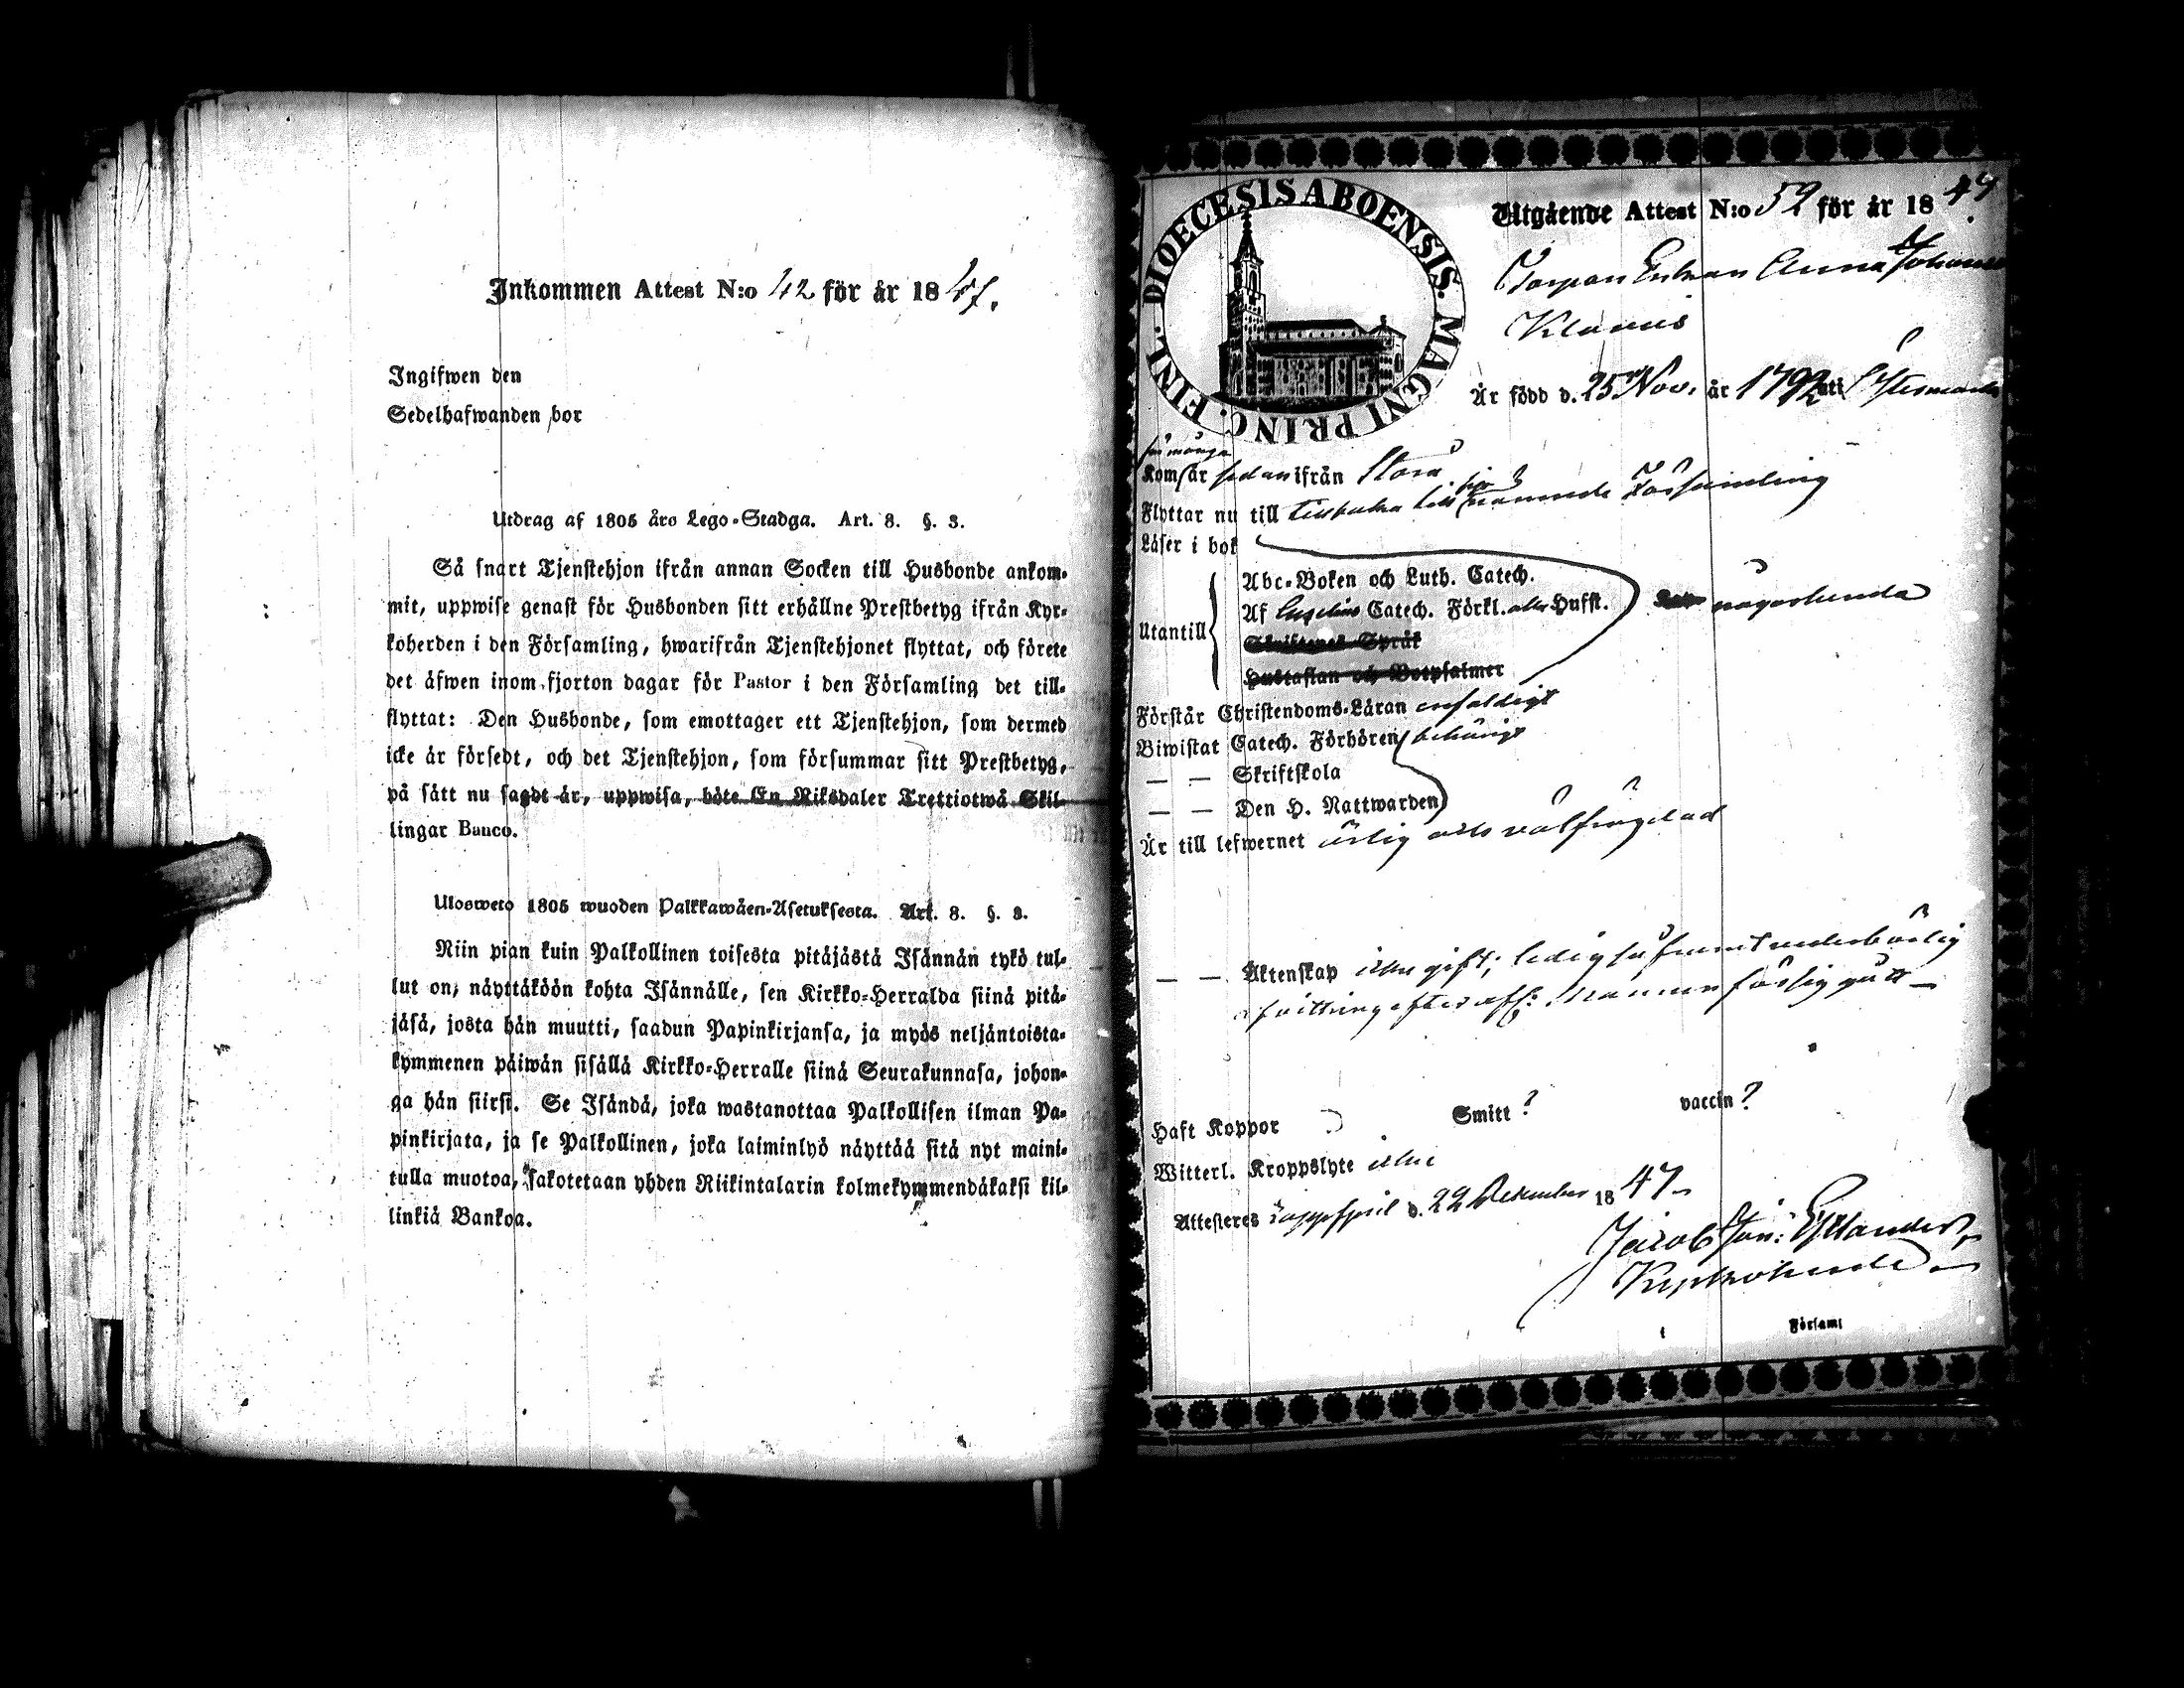 Inkommen Attest N:o 42 för år 1847.
Ingifwen den
Sedelhafwanden bor
Utdrag af 1805 års Lego-Stadga. Art. 8. §. 3.
Så snart Tjenstehjon ifrån annan Socken till Husbonde ankom-
mit, uppwise genast för Husbonden sitt erhållne Prestbetyg ifrån Kyr-
koherden i den Församling, hwarifrån Tjenstehjonet flyttat, och förete
det äfwen inom fjorton dagar för Pastor i den Församling det till-
flyttat: Den Husbonde, som emottager ett Tjenstehjon, som dermed
icke är försedt, och det Tjenstehjon, som försummar sitt Prestbetyg,
på sätt nu sagdt är, uppwisa, böte En Riksdaler Trettiotwå Skil-
lingar Banco.
Ulosweto 1805 wuoden Palkkawäen-Asetuksesta. Art. 8. §. 3.
Niin pian kuin Palkollinen toisesta pitäjästä Isännän tykö tul-
lut on, näyttäköön kohta Isännälle, sen Kirkko-Herralda siinä pitä-
jäsä, josta hän muutti, saadun Papinkirjansa, ja myös neljäntoista-
kymmenen päiwän sisällä Kirkko-Herralle siinä Seurakunnasa, johon-
ga hän siirsi. Se Isändä, joka wastanottaa Palkollisen ilman Pa-
pinkirjata, ja se Palkollinen, joka laiminlyö näyttää sitä nyt maini-
tulla muotoa, sakotetaan yhden Riikintalarin kolmekymmendäkaksi kil-
linkiä Bankoa.
DIOECESIS ABOENSIS. MAGNI PRINC. FINL.
Utgående Attest N:o 52 för år 1847.
Enkan Anna Johans
Är född d. 25 Nov. år 1792 uti Östermark
för många
Kom år sedan ifrån Storå
Flyttar nu till tillbaka till nämnde Församling
Läser i bok
Utantill
Abc-Boken och Luth. Catech.
Af Catech. Förkl. Hufst. någorlunda
Skriftenes Språk
Hustaflan och Botpsalmer
Förstår Christendoms-Läran enfaldigt
Biwistat Catech. Förhören behörigt
— — Skriftskola
— — Den H. Nattwarden
Är till lefwernet ärlig och välfrägdad
— — Äktenskap icke gift; ledig så framt vederbörlig
afvittring efter afl: Mannen försiggått —
Haft Koppor Smitt ? vaccin ?
Witterl. Kroppslyte icke
Attesteres Lappfjerd d. 22 December 1847 —
Jacob Joh: Estlander,
Kyrkoherde —
Församl